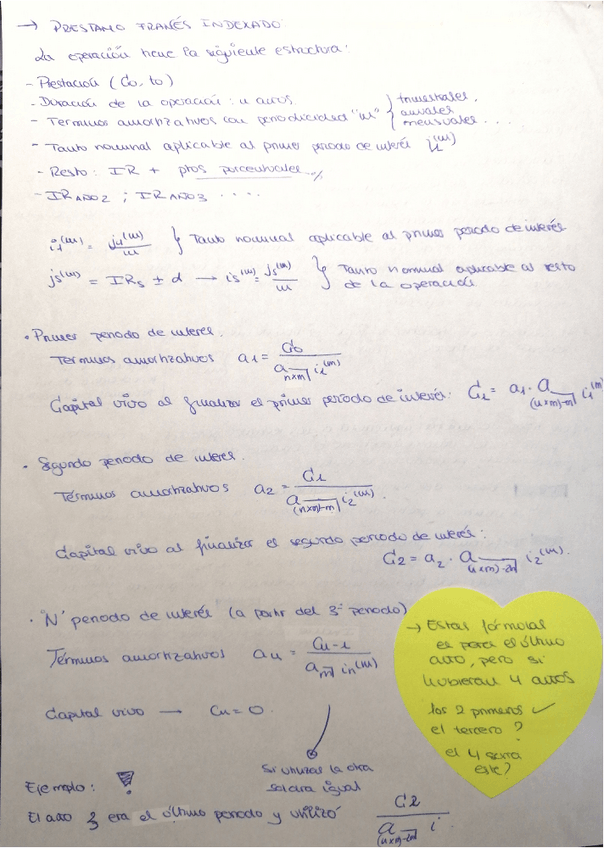 → PRESTAMO FRANÉS INDEXADO:
La operación tiene la siguiente estructura:
- Prestación (C0, t0)
- Duración de la operación: n años.
- Términos amortizativos con periodicidad "m" } trimestrales, anuales mensuales ....
- Tanto nominal aplicable al primer periodo de interés j1^(m)
- Resto: IR + ptos porcentuales
- IR AÑO2 ; IR AÑO3 ....
i1^(m) = j1^(m)/m } Tanto nominal aplicable al primer periodo de interés
js^(m) = IRs ± d → is^(m) = js^(m)/m } Tanto nominal aplicable al resto de la operación
• Primer periodo de interés.
Términos amortizativos a1 = C0 / a n×m¬ i1^(m)
Capital vivo al finalizar el primer periodo de interés: C1 = a1 · a (n×m)-m¬ i1^(m)
• Segundo periodo de interes.
Términos amortizativos a2 = C1 / a (n×m)-m¬ i2^(m).
Capital vivo al finalizar el segundo periodo de interés:
C2 = a2 · a (n×m)-2m¬ i2^(m).
• "N" periodo de interés (a partir del 3º periodo)
Términos amortizativos an = Cn-1 / a m¬ in^(m)
Capital vivo → Cn = 0.
Si utilizas la otra
saldra igual
→ Estas fórmulas
es para el último
año, pero si
hubieran 4 años
los 2 primeros ✓
el tercero ?
el 4 seria
este?
Ejemplo: !
El año 3 era el último periodo y utilizó C2 / a (n×m)-2m¬ i